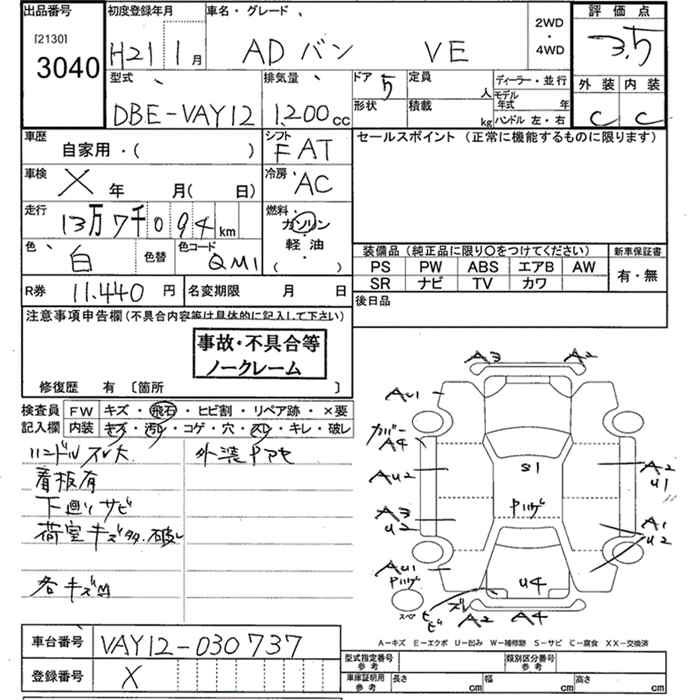 出品番号 初度登録年月 車名・グレード 評価点
[2130] 3040 H21 1月 ADバン VE 2WD・4WD 3.5
型式 排気量 ドア 5 定員 人 ディーラー・並行 外装 内装
DBE-VAY12 1,200cc 形状 積載 kg モデル年式 年 ハンドル 左・右 C C
車歴 シフト セールスポイント (正常に機能するものに限ります)
自家用・( ) FAT
車検 冷房
X 年 月( 日) AC
走行 燃料
13万7千094km ガソリン・軽油・( )
色 白 色替 色コード QM1
装備品 (純正品に限り○をつけてください) 新車保証書
PS PW ABS エアB AW 有・無
SR ナビ TV カワ
R券 11.440 円 名変期限 月 日
後日品
注意事項申告欄 (不具合内容等は具体的に記入して下さい)
事故・不具合等
ノークレーム
修復歴 有 〔箇所 〕
検査員 FW キズ・飛石・ヒビ割・リペア跡・×要
記入欄 内装 キズ・汚れ・コゲ・穴・スレ・キレ・破レ
ハンドルスレ大 外装
看板有
下廻りサビ
荷室キズ 破レ
各キズ凹
A3 A2
AU1
カバー
A4
AU2
A3
U2
AU1
S1
A2
U1
A1
U2
U4
スペ
ズレ A2 A4
A-キズ E-エクボ U-凹み W-補修跡 S-サビ C-腐食 XX-交換済
車台番号 VAY12-030737
登録番号 X
型式指定番号 参考 類別区分番号 参考
車庫証明用 参考 長さ cm 幅 cm 高さ cm